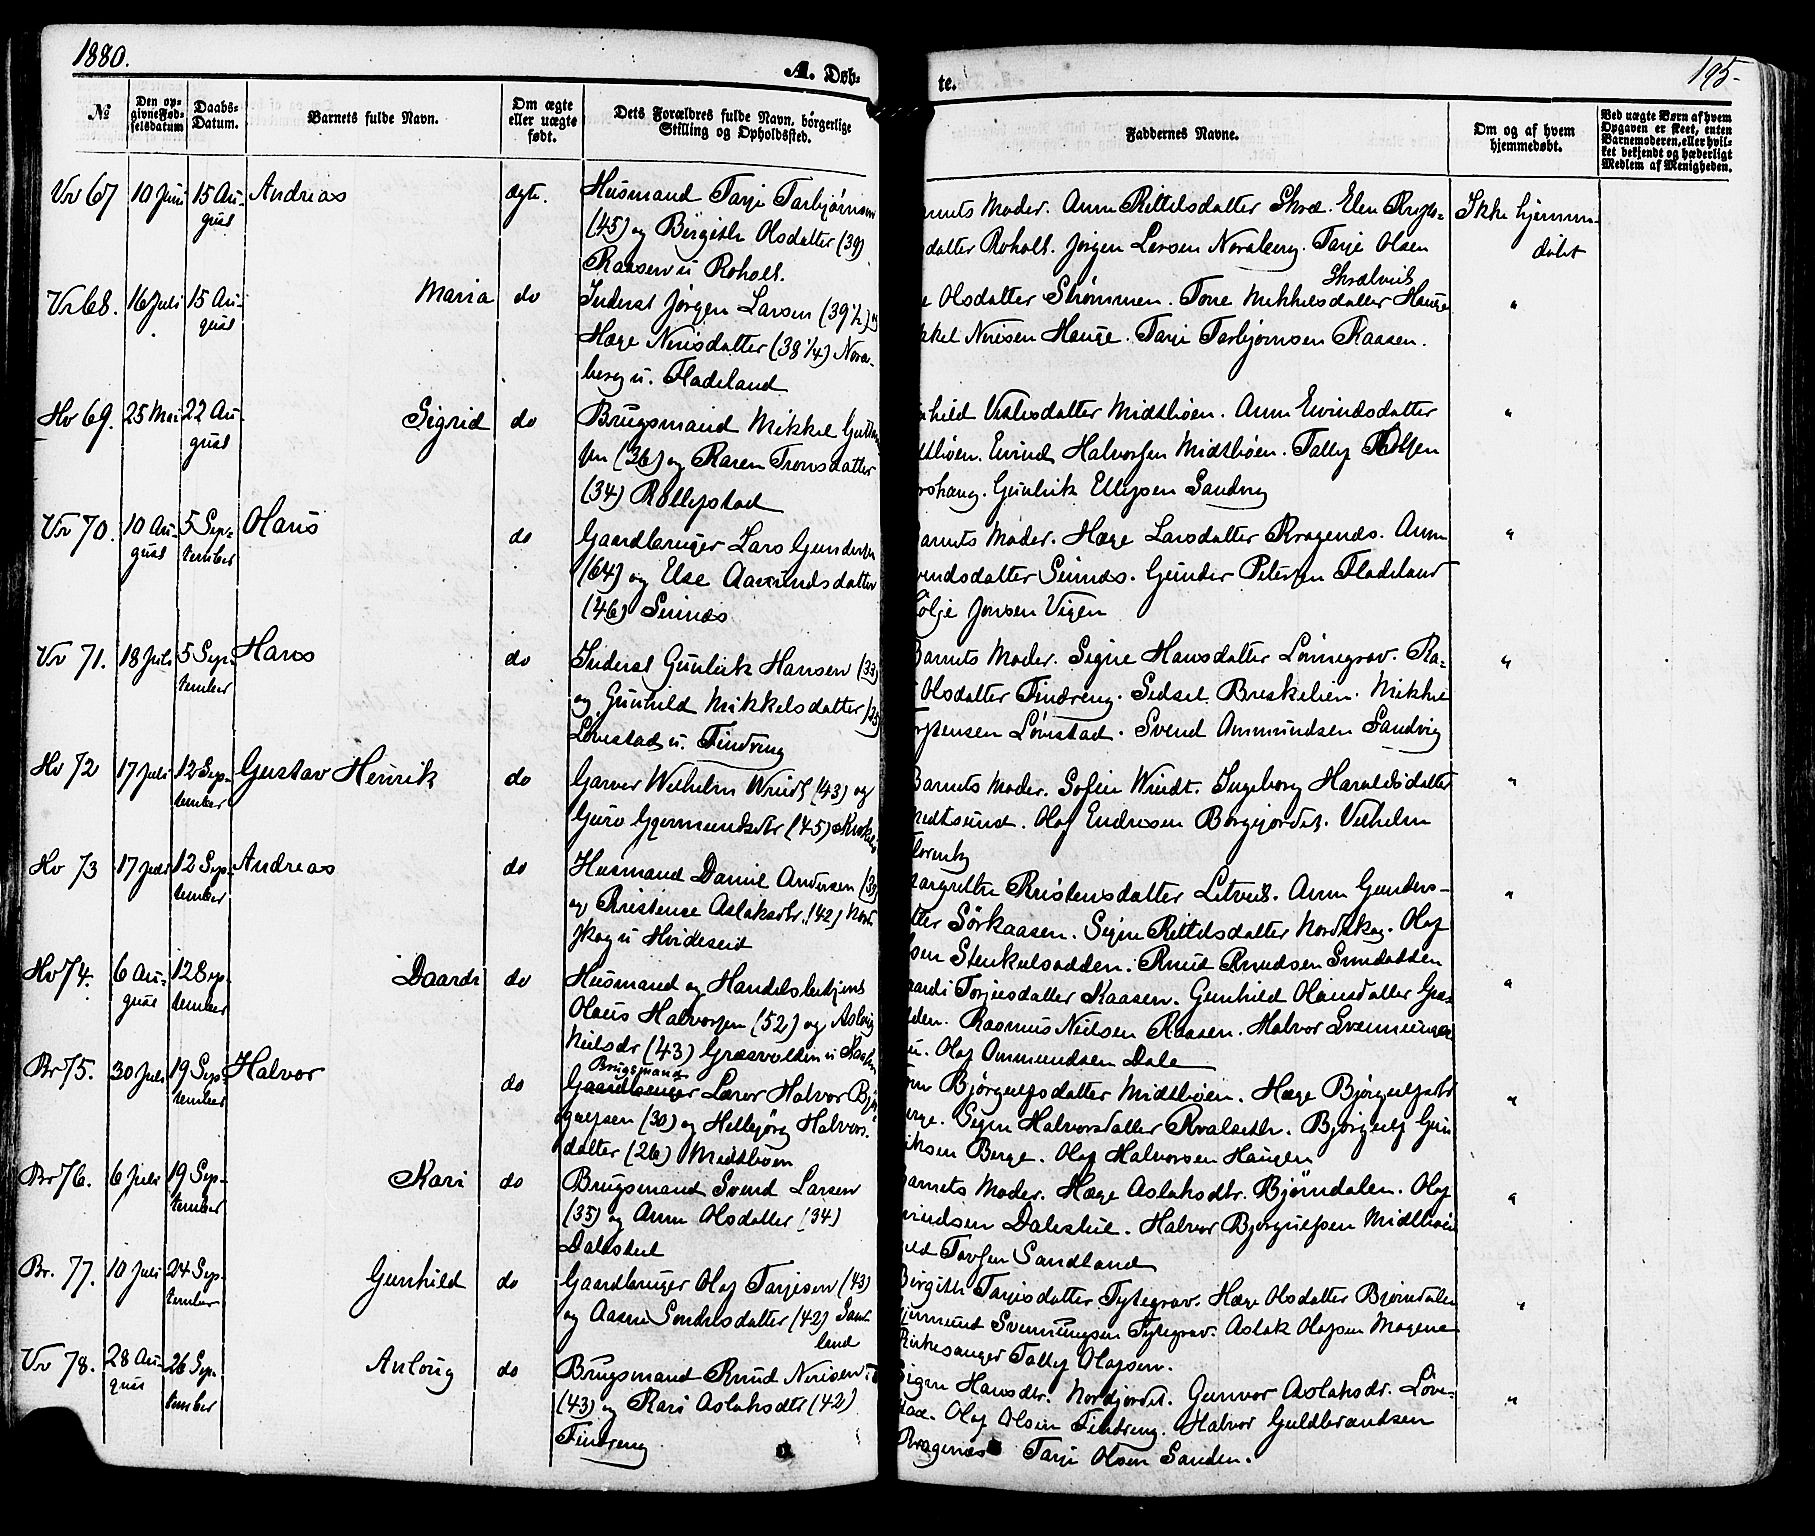 1880.
A. Døb-
te.
195-
№
Den op-
givne Fød-
selsdatum
Daabs-
Datum.
Barnets fulde Navn.
Om ægte
eller uægte
født.
Dets Forældres fulde Navn, borgerlige
Stilling og Opholdssted.
Faddernes Navne.
Om og af hvem
hjemmedøbt.
Ved uægte Børn af hvem
Opgaven er skeet, enten
Barnemoderen, eller hvil-
ket bekjendt og hæderligt
Medlem af Menigheden.
Vr 67 10 Juni 15 Au-
gust
Andreas
ægte.
Husmand Tarje Tarbjørnsen
(45) og Birgith Olsdatter (39)
Kaasen u Roholt.
Moder. Anne Kittelsdatter Elen
datter Roholt. Jørgen Larsen Noraberg. Tarje Olsen
Ikke hjemme-
døbt
Vr 68. 16 Juli 15 Au-
gust
Maria
do
Inderst Jørgen Larsen (39 1/2) og
Hæge Nirisdatter (38 1/4) Nora-
berg u. Fladeland
Olsdatter Strømmen. Tone Mikkelsdatter Hauge
Nirisen Hauge. Tarje Tarbjørnsen Kaasen.
"
Hv 69. 25 Mai 22 Au-
gust
Sigrid
do
Brugsmand Mikkel
(36) og Karen Tronsdatter
(34) Rollefstad
Midtbøen. Anne Eivindsdatter
Eivind Halvorsen Midtbøen. Tallef
Gunlek Ellefsen Sandvig
"
Vr 70. 10 Au-
gust
5 Sep-
tember
Olaus
do
Gaardbruger Lars Gundersen
(64) og Else Aamundsdatter
(46) Seines
Barnets Moder. Hæge Larsdatter Kragenes. Anne
datter Seines. Gunder Petersen Fladeland
Jonsen Vigen
"
Vr 71. 18 Juli 5 Sep-
tember
Hans
do
Inderst Gunlek Hansen (33)
og Gunhild Mikkelsdatter (25)
Lønestad u. Findreng
Barnets Moder. Signe Hansdatter Lønnegrav. Ka-
Olsdatter Findreng. Sidsel Breskelien. Mikkel
Lønestad. Svend Ammundsen Sandvig
"
Hv 72 17 Juli 12 Sep-
tember
Gustav Henrik
do
Garver Wilhelm Windt (43) og
Guro (45)
Barnets Moder. Sofie Windt. Ingeborg Haraldsdatter
Olaf Endresen Borgejordet. Vilhelm
"
Hv 73 17 Juli 12 Sep-
tember
Andreas
do
Husmand Daniel Andersen (39)
og Kristense Aslaksdtr. (42) Nord-
skog u Hvideseid
Kristensdatter Litveit. Anne Gunders-
Sørkaasen. Signe Kittelsdatter Nordskog. Olaf
Knud Knudsen
"
Hv 74. 6 Au-
gust
12 Sep-
tember
Daardi
do
Husmand og Handelsbetjent
Olaus Halvorsen (52) og Aslaug
Neilsdr (43) Græsvolden u Kaasen
Torjusdatter Kaasen. Gunhild Olausdatter
Rasmus Nielsen Kaasen. Halvor Svenningsen
Olaf Ammundsen Dale
"
Br 75. 30 Juli 19 Sep-
tember
Halvor
do
Brugsmand
Gaardbruger Lærer Halvor Bjør-
gulfsen (30) og Hellbjørg Halvors-
datter (26) Midtbøen
Bjørgulfsdatter Midtbøen. Hæge Bjørgulfsdtr
Signe Halvorsdatter Kvalsethr. Bjørgulf Gun-
Berge. Olaf Halvorsen Haugen
"
Br 76. 6 Juli 19 Sep-
tember
Kari
do
Brugsmand Svend Larsen
(35) og Anne Olsdatter (34)
Dalestul
Barnets Moder. Hæge Aslaksdtr. Bjørndalen. Olaf
Dalestul. Halvor Bjørgulfsen Midtbøen
Sandland
"
Br. 77. 10 Juli 24 Sep-
tember
Gunhild
do
Gaardbruger Olaf Tarjesen (43)
og Aasne Sondelsdatter (42) Sand-
land
Birgith Tarjesdatter Tytegrav. Hæge Olsdatter Bjørndalen
Svenningsen Tytegrav. Aslak Olafsen Mogene
Kirkesanger Tallef Olafsen.
"
Vr 78. 28 Au-
gust
26 Sep-
tember
Anloug
do
Brugsmand Knud Nirisen
(43) og Kari Aslaksdtr (42)
Findreng
Signe Hansdtr. Nordjordet. Gunvor Aslaksdr. Løne-
stad. Olaf Olsen Findreng. Halvor Guldbrandsen
Kragenæs Tarje Olsen Sanden.
"